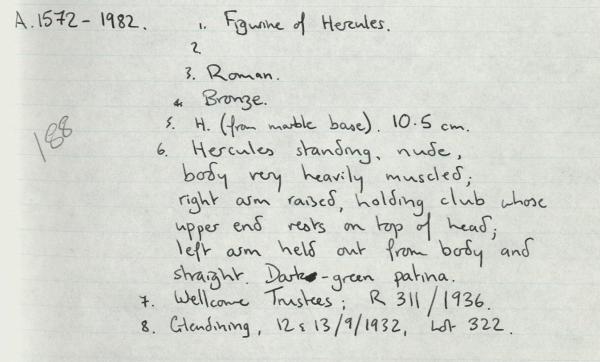 A.1572-1982. 1. Figurine of Hercules.
2.
3. Roman.
4. Bronze.
5. H. (from marble base). 10.5 cm.
188
6. Hercules standing, nude,
body very heavily muscled;
right arm raised, holding club whose
upper end rests on top of head;
left arm held out from body and
straight. Dark-green patina.
7. Wellcome Trustees; R 311/1936.
8. Glendining, 12 & 13/9/1932, Lot 322.